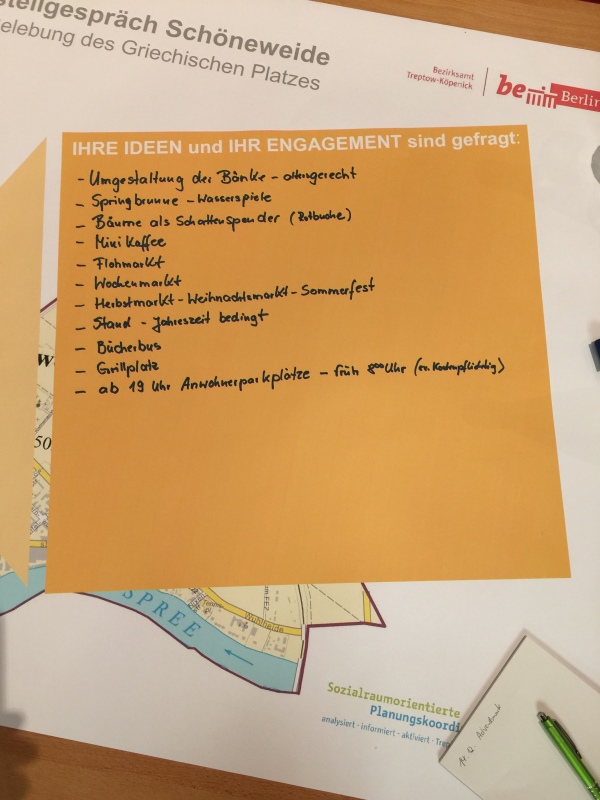 stellgespräch Schöneweide
elebung des Griechischen Platzes
Bezirksamt
Treptow-Köpenick
be Berlin
IHRE IDEEN und IHR ENGAGEMENT sind gefragt:
- Umgestaltung der Bänke - altengerecht
- Springbrunne - Wasserspiele
- Bäume als Schattenspender (Rotbuche)
- Mini Kaffee
- Flohmarkt
- Wochenmarkt
- Herbstmarkt - Weihnachtsmarkt - Sommerfest
- Stand - Jahreszeit bedingt
- Bücherbus
- Grillplatz
- ab 19 Uhr Anwohnerparkplätze - früh 8⁰⁰ Uhr (ev. Kostenpflichtig)
W
50
SPREE
Wuhlheide
Sozialraumorientierte
Planungskoordi
analysiert · informiert · aktiviert · Trep